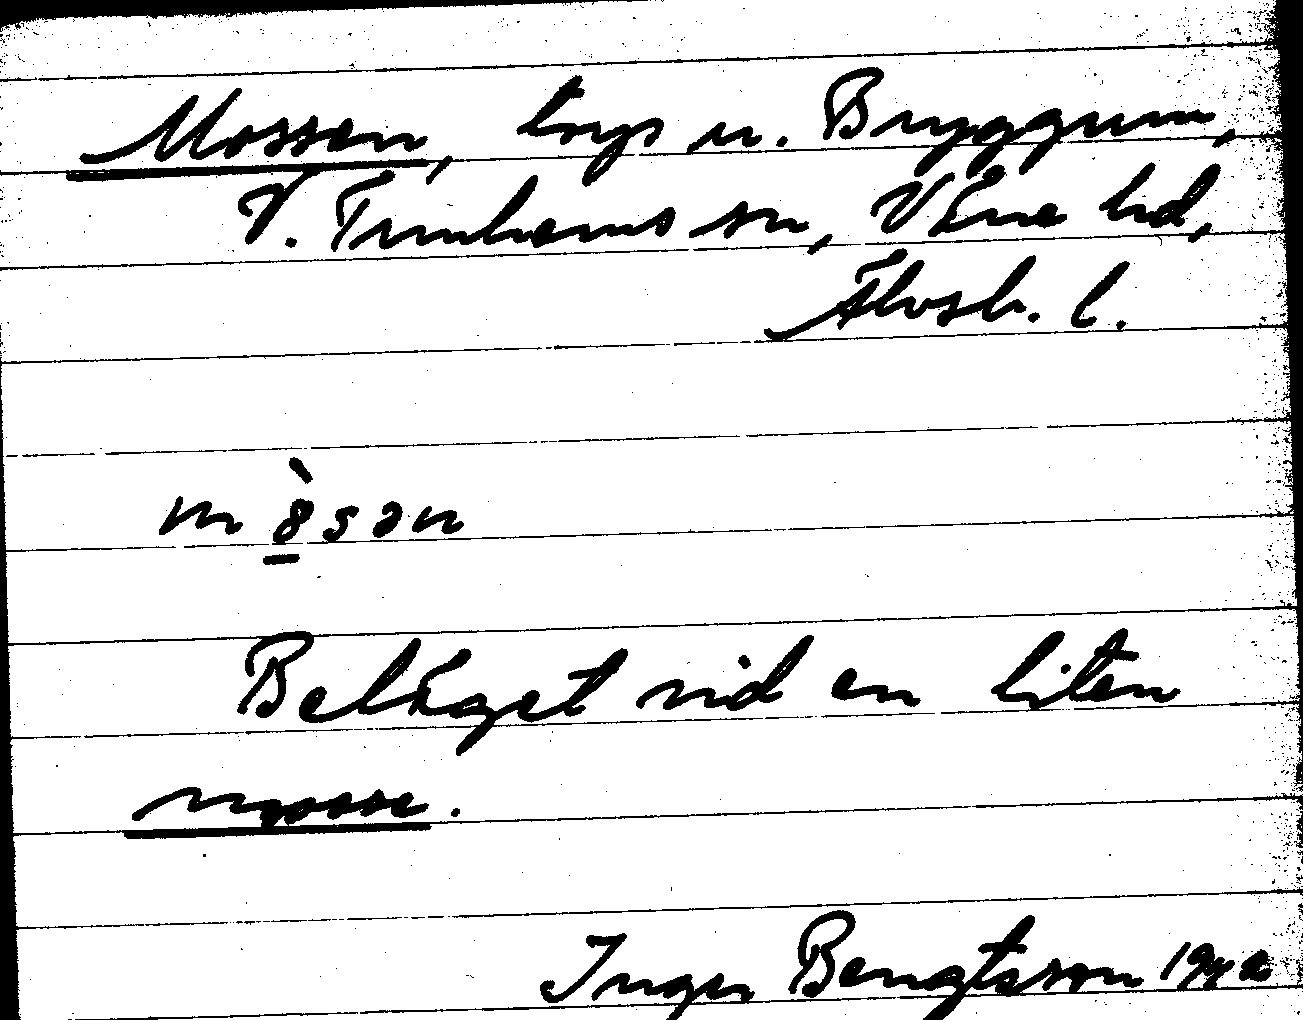 Mossen, torp u. Bryggum,
V. Tunhems sn, Väne hd,
Älvsb. l.
m8̠̀sən
Beläget vid en liten
mosse.
Inger Bengtsson